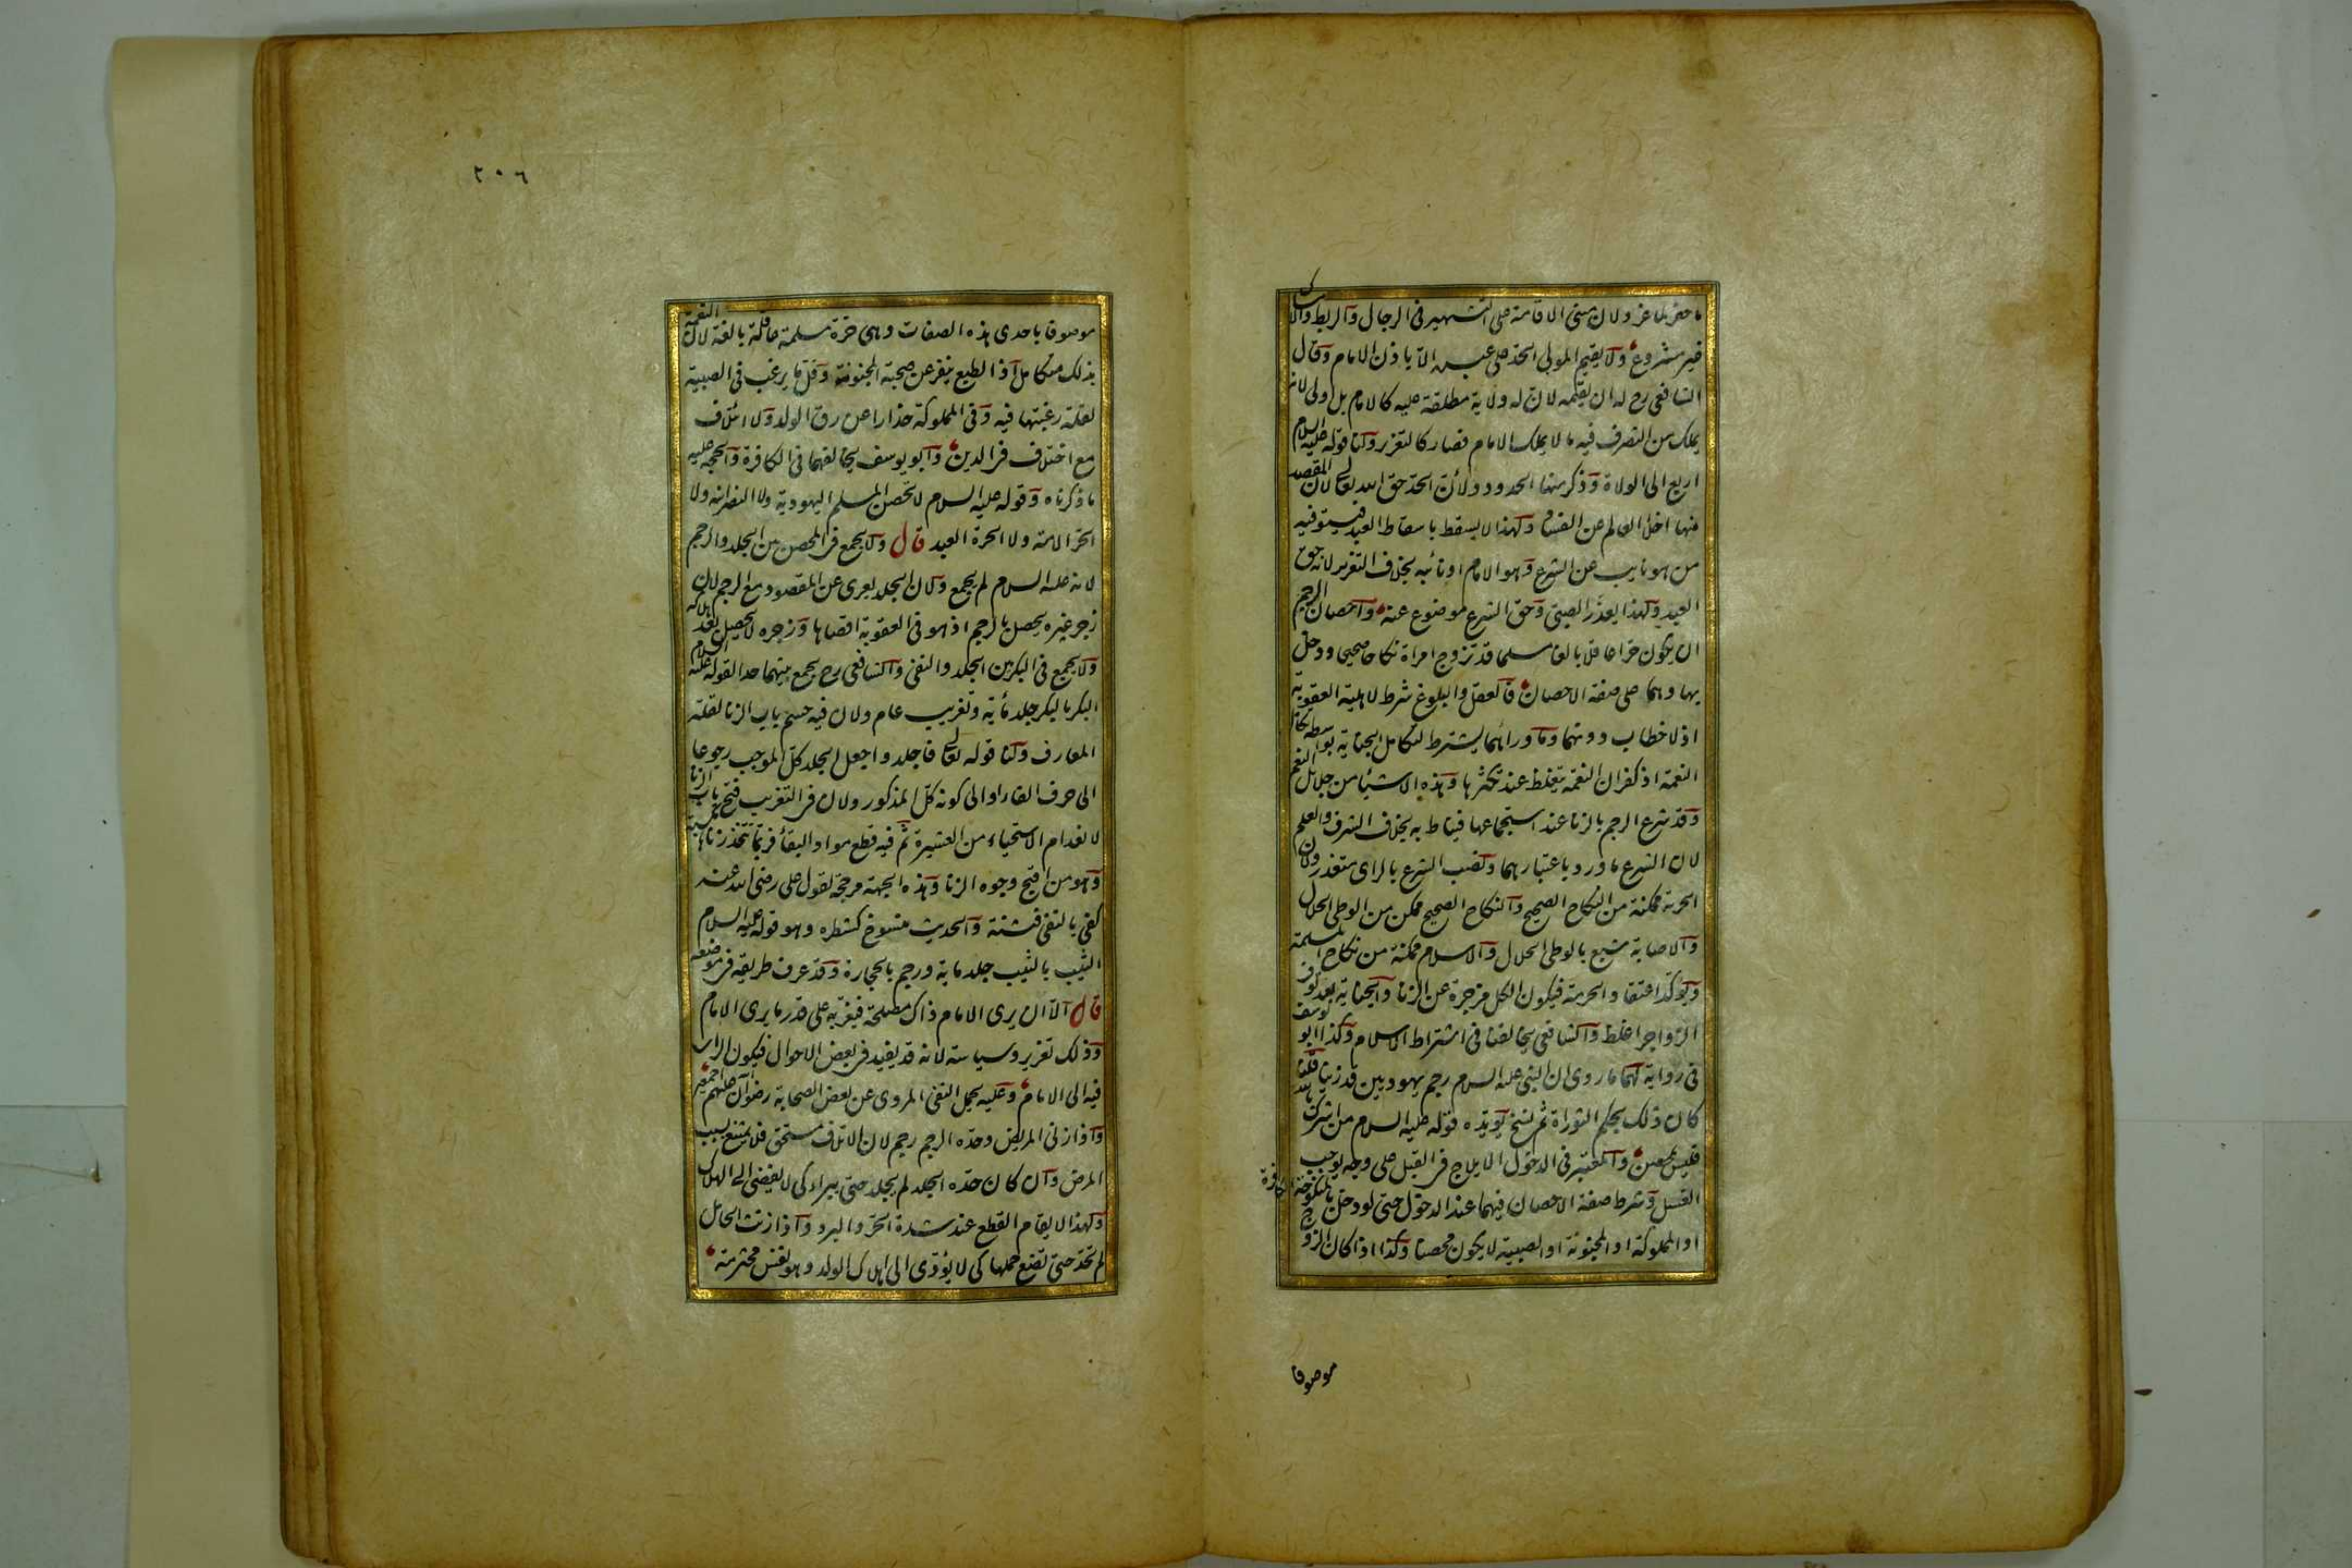 ما حفر لماعز ولان مبنى الاقامة على التشهير فى الرجال والربط والامساك
غير مشروع ولا يقيم المولى الحد على عبده الا باذن الامام وقال
الشافعى رح له ان يقيمه لان له ولاية مطلقة عليه كالامام بل اولى لانه
يملك من التصرف فيه ما لا يملك الامام فصار كالتعزير ولنا قوله عليه السلام
اربع الى الولاة وذكر منها الحدود ولان الحد حق الله تعالى لان المقصد
منها اخلا العالم عن الفساد ولهذا لا يسقط باسقاط العبد فيستوفيه
من هو نايب عن الشرع وهو الامام او نائبه بخلاف التعزير لانه حق
العبد ولهذا يعذر الصبى وحق الشرع موضوع عنه واحصان الرجم
ان يكون حرا عاقلا بالغا مسلما قد تزوج امراة نكاحا صحيحا ودخل
بها وهما على صفة الاحصان فالعقل والبلوغ شرط لاهلية العقوبة
اذ لا خطاب دونهما وما ورائهما يشترط لتكامل الجناية بواسطة تكامل
النعمة اذ كفران النعمة يتغلظ عند تكثرها وهذه الاشيا من جلائل النعم
وقد شرع الرجم بالزنا عند استجماعها فيناط به بخلاف الشرف والعلم
لان الشرع ما ورد باعتبارهما ونصب الشرع بالراى متعذر ولان
الحرية ممكنة من النكاح الصحيح والنكاح الصحيح ممكن من الوطى الحلال
والاصابة شبع بالوطى الحلال والاسلام ممكنة من نكاح المسلمة
ويوكد اعتقاد الحرمة فيكون الكل مزجرة عن الزنا والجناية بعد توفر
الزواجر اغلظ والشافعى يخالفنا فى اشتراط الاسلام وكذا ابو يوسف
فى رواية لهما ما روى ان النبى عليه السلام رجم يهوديين قد زنيا قلنا
كان ذلك بحكم التوراة ثم نسخ يويده قوله عليه السلام من اشرك بالله
فليس بمحصن والمعتبر فى الدخول الايلاج فى القبل على وجه يوجب
الغسل وشرط صفة الاحصان فيهما عند الدخول حتى لو دخل بالمنكوحة الكافرة
او المملوكة او المجنونة او الصبية لا يكون محصنا وكذا اذا كان الزوج
موصوفا
٢٠٦
موصوفا باحدى هذه الصفات وهى حرة مسلمة عاقلة بالغة لان النعمة
بذلك متكامل اذ الطبع ينفر عن صحبة المجنونة وقل ما يرغب فى الصبية
لقلة رغبتها فيه وفى المملوكة حذارا عن رق الولد ولا ائتلاف
مع اختلاف فى الدين وابو يوسف يخالفهما فى الكافرة والحجه عليه
ما ذكرناه وقوله عليه السلام لا تحصن المسلم اليهودية ولا النصرانية ولا
الحر الامة ولا الحرة العبد قال ولا يجمع فى المحصن بين الجلد والرجم
لانه عليه السلام لم يجمع ولان الجلد يعرى عن المقصود مع الرجم لان
زجر غيره يحصل بالرجم اذ هو فى العقوبة اقصاها وزجره لا يحصل بعد هلاكه
ولا يجمع فى البكر بين الجلد والنفى والشافعى رح يجمع بينهما حدا لقوله عليه السلام
البكر بالبكر جلد مائة وتغريب عام ولان فيه حسم باب الزنا لقلة
المعارف ولنا قوله تعالى فاجلدوا جعل الجلد كل الموجب رجوعا
الى حرف الفاء او الى كونه كل المذكور ولان فى التغريب فتح باب الزنا
لانعدام الاستحياء من العشيرة ثم فيه قطع مواد البقاء فربما تتخذ زناها مكسبة
وهو من اقبح وجوه الزنا وهذه الجهة مرجحة لقول على رضى الله عنه
كفى بالنفى فتنة والحديث منسوخ كشطره وهو قوله عليه السلام
الثيب بالثيب جلد ماية ورجم بالحجارة وقد عرف طريقه فى موضعه
قال الا ان يرى الامام ذاك مصلحة فيغربه على قدر ما يرى الامام
وذلك تعزير وسياسة لانه قد يفيد فى بعض الاحوال فيكون الراى
فيه الى الامام وعليه يحمل النفى المروى عن بعض الصحابة رضوان الله عليهم اجمعين
واذا زنى المريض وحده الرجم رجم لان الاتلاف مستحق فلا يمتنع بسبب
المرض وان كان حده الجلد لم يجلد حتى يبراء كى لا يفضى الى الهلاك
ولهذا لا يقام القطع عند شدة الحر والبرد واذا زنت الحامل
لم تحد حتى تضع حملها كى لا يؤدى الى اهلاك الولد وهو نفس محترمة